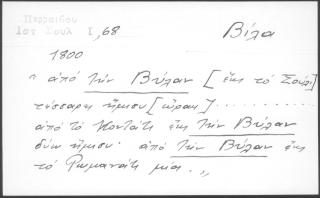 Περραιβου
Ιστ Σουλ Ι,68
Βίλα
1800
"από την Βύλαν [εις το Σούλι]
τέσσαρες ήμισυ [ώραι] . . . . . . . . .
από το εις την Βύλαν
δύω ήμισυ. από την Βύλαν εις
το Ρωμανάτι μία. „